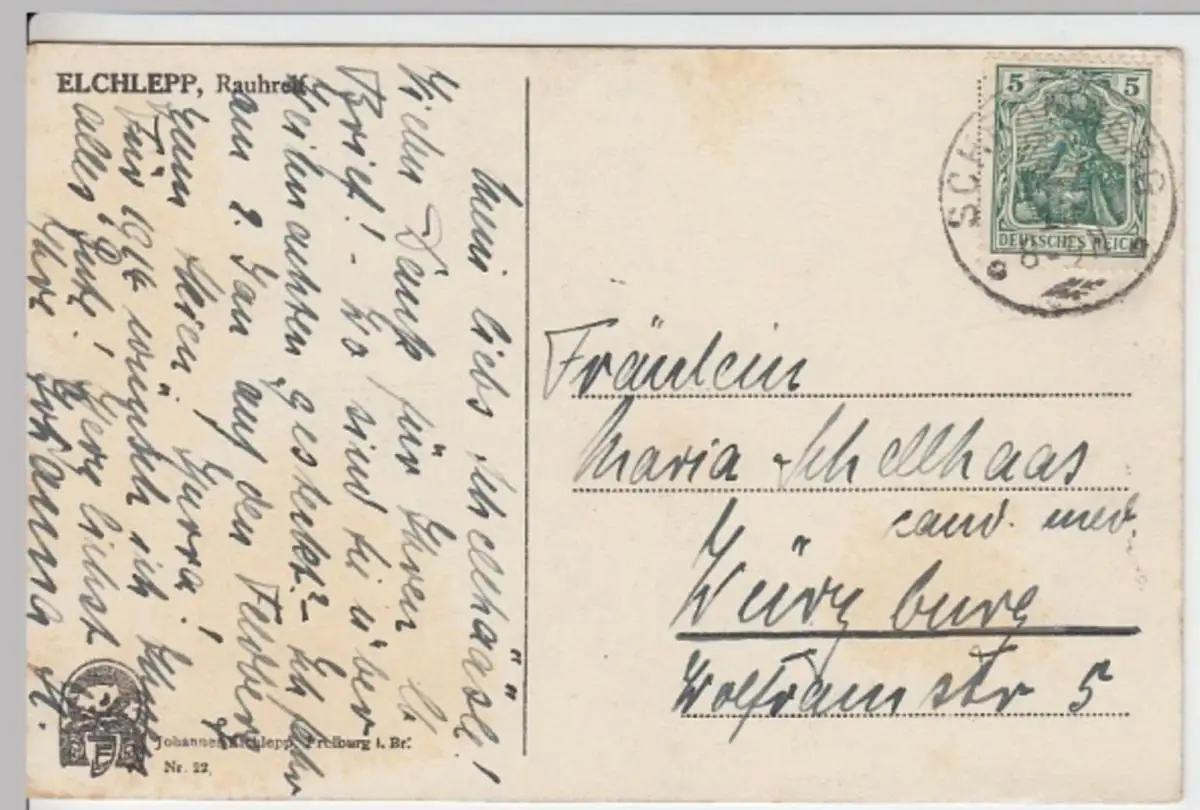 ELCHLEPP, Rauhreif
Mein liebs Schellhäsle!
Vielen Dank für Ihren lb.
Brief! - Wo sind Sie über
Weihnachten gesteckt? - Ich fahr
am 2. Jan auf den Feldberg
zum Skien! Hurra!
Für 1914 wünsch ich Ihnen
alles Gute! Herzlichst
Ihre Johanna
5 5
DEUTSCHES REICH
Fräulein
Maria Schellhaas
cand. med.
Würzburg
Wolframstr 5
Johannes Elchlepp, Freiburg i. Br.
Nr. 22